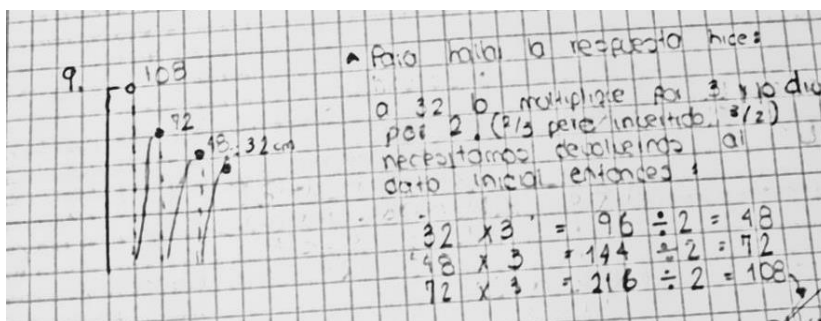 9.
108
72
48
32 cm
▲ Para hallar la respuesta hice:
a 32 lo multiplique por 3 y lo div
por 2. (2/3 pero invertido, 3/2)
necesitamos devolvernos al
dato inicial entonces:
32 x 3 = 96 ÷ 2 = 48
48 x 3 = 144 ÷ 2 = 72
72 x 3 = 216 ÷ 2 = 108